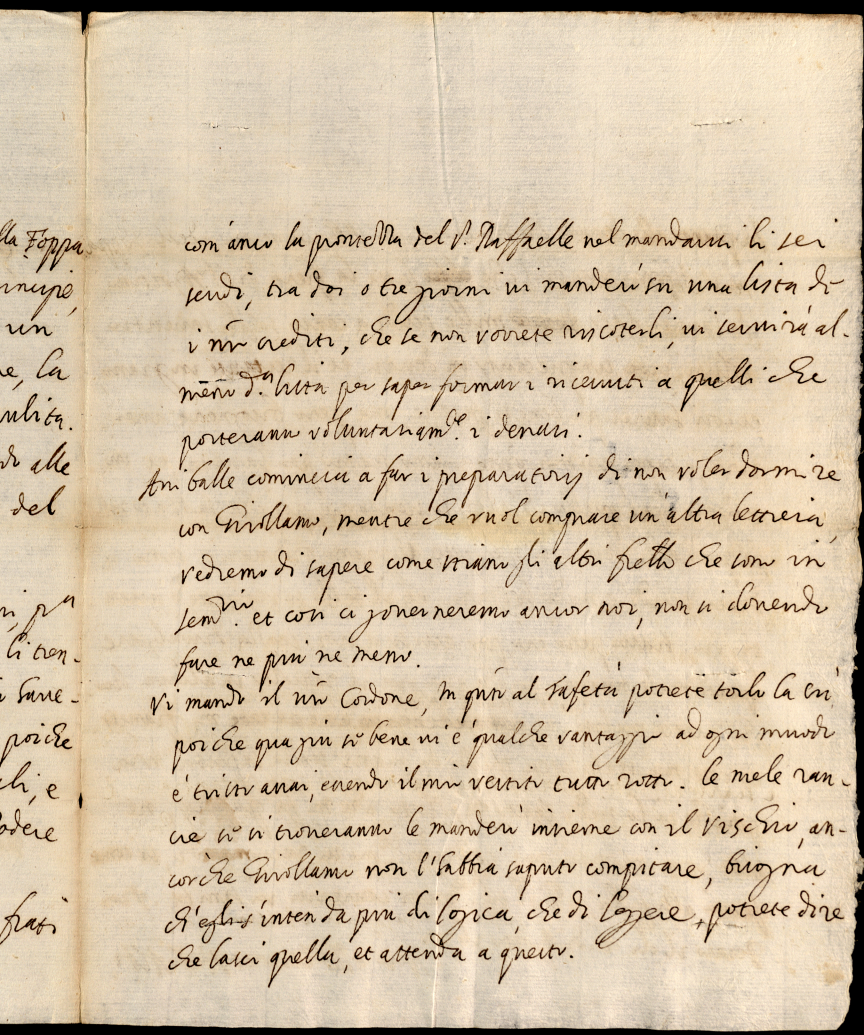 lla Foppa
incipe,
un
e, la
ulita.
do alle
del
li tren-
Save-
poiche
li, e
odere
frati
com'anco la prontezza del S.r Raffaelle nel mandarvi li sei
scudi, tra doi o tre giorni vi manderò su una lista de
i n'ri crediti, che se non vorrete riscoterli, vi servirà al-
meno d.a lista per saper formar i ricevuti a quelli che
porteranno voluntariam.te i denari.
Aniballe comincia a far i preparatorij di non voler dormire
con Girollamo, mentre che vuol comprare un'altra lettiera,
vedremo di sapere come stiano gli altri fratti che sono in
sem.rio et cosi ci governeremo ancor noi, non si dovendo
fare ne piu ne meno.
Vi mando il n'ro Cordone, in q'to al Safetà potrete torlo la su
poiche qua giu se bene vi è qualche vantaggio ad ogni muodo
è tristo assai, essendo il mio vestito tutto rotto. le mele ran-
cie se si troveranno le manderò insieme con il vischio, an-
corche Girollamo non l'habbia saputo compitare, bisogna
ch'egli s'intenda piu di logica, che di leggere, potrete dire
che lasci quella, et attenda a questo.